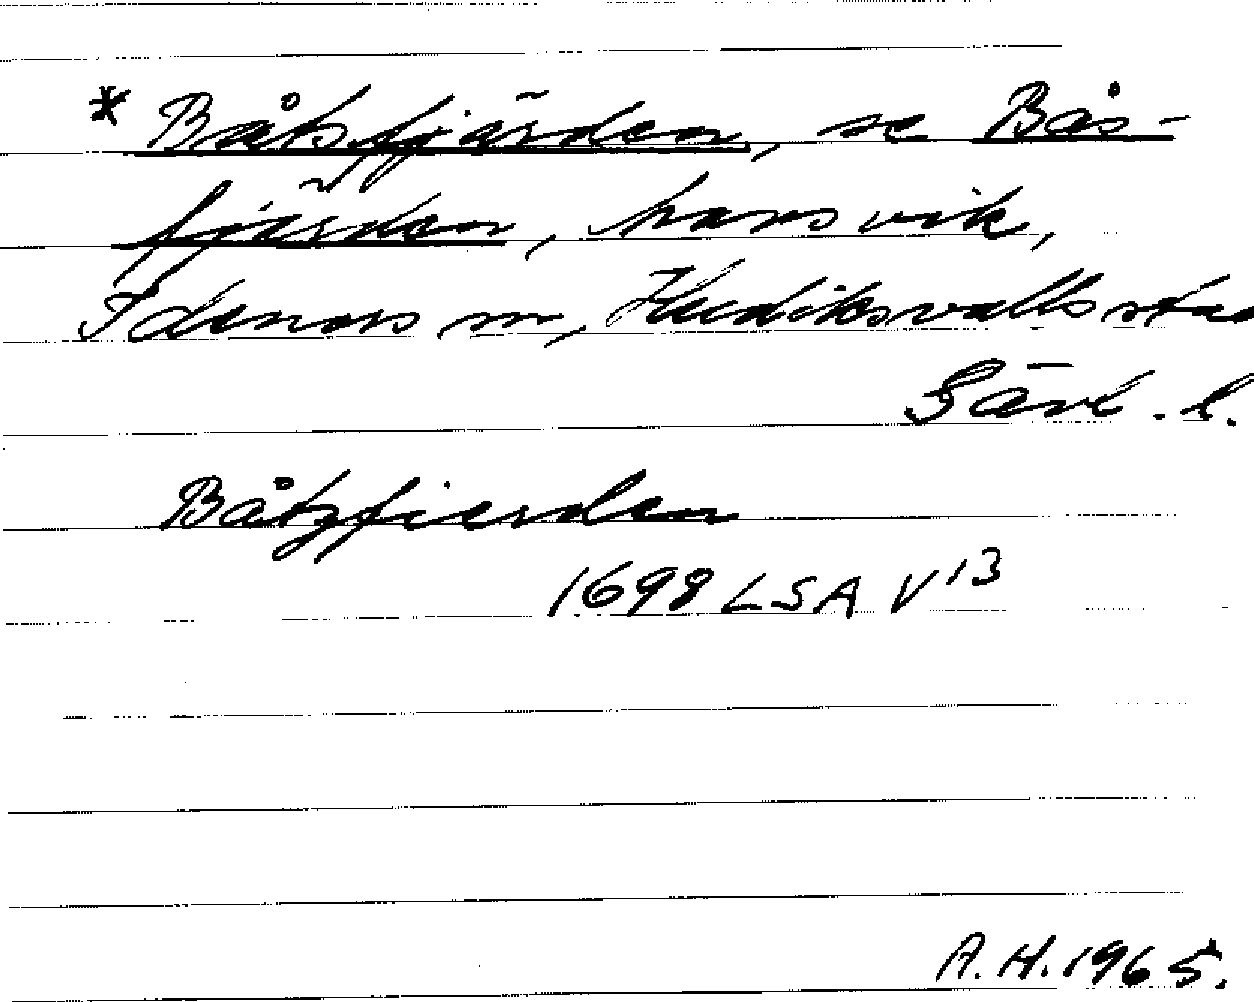 * Båtsfjärden, se Bås-
fjärden, havsvik,
Idenors sn, Hudiksvalls sta
Gävl. l.
Båtzfierden
1698 LSA V 13
A.H. 1965.